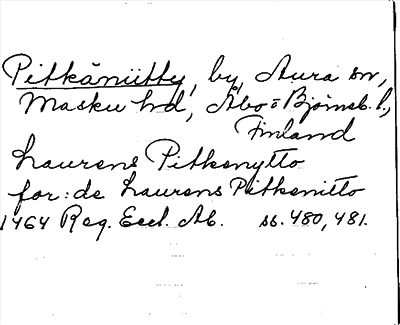 Pitkäniitty, by, Aura sn,
Masku hd, Åbo o Björneb. l.,
Finland
Laurens Pitkenytto
for: de Laurens Pitkenitto
1464 Reg. Eccl. Ab. ss. 480, 481.